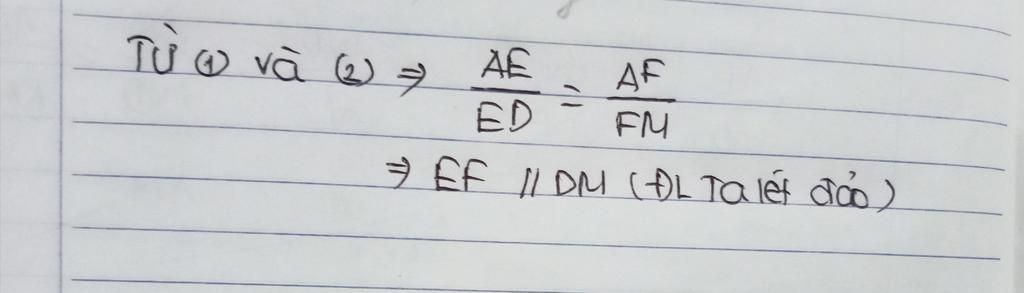 Từ (1) và (2) ⇒ AE/ED = AF/FM
⇒ EF // DM (ĐL Ta lét đảo)